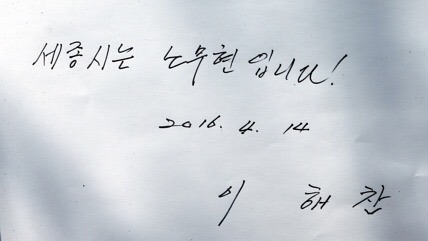 세종시는 노무현입니다!
2016. 4. 14
이 해 찬